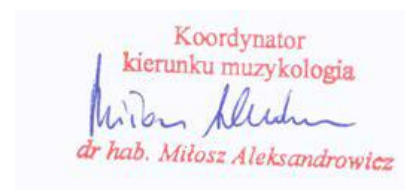 Koordynator
kierunku muzykologia
dr hab. Miłosz Aleksandrowicz